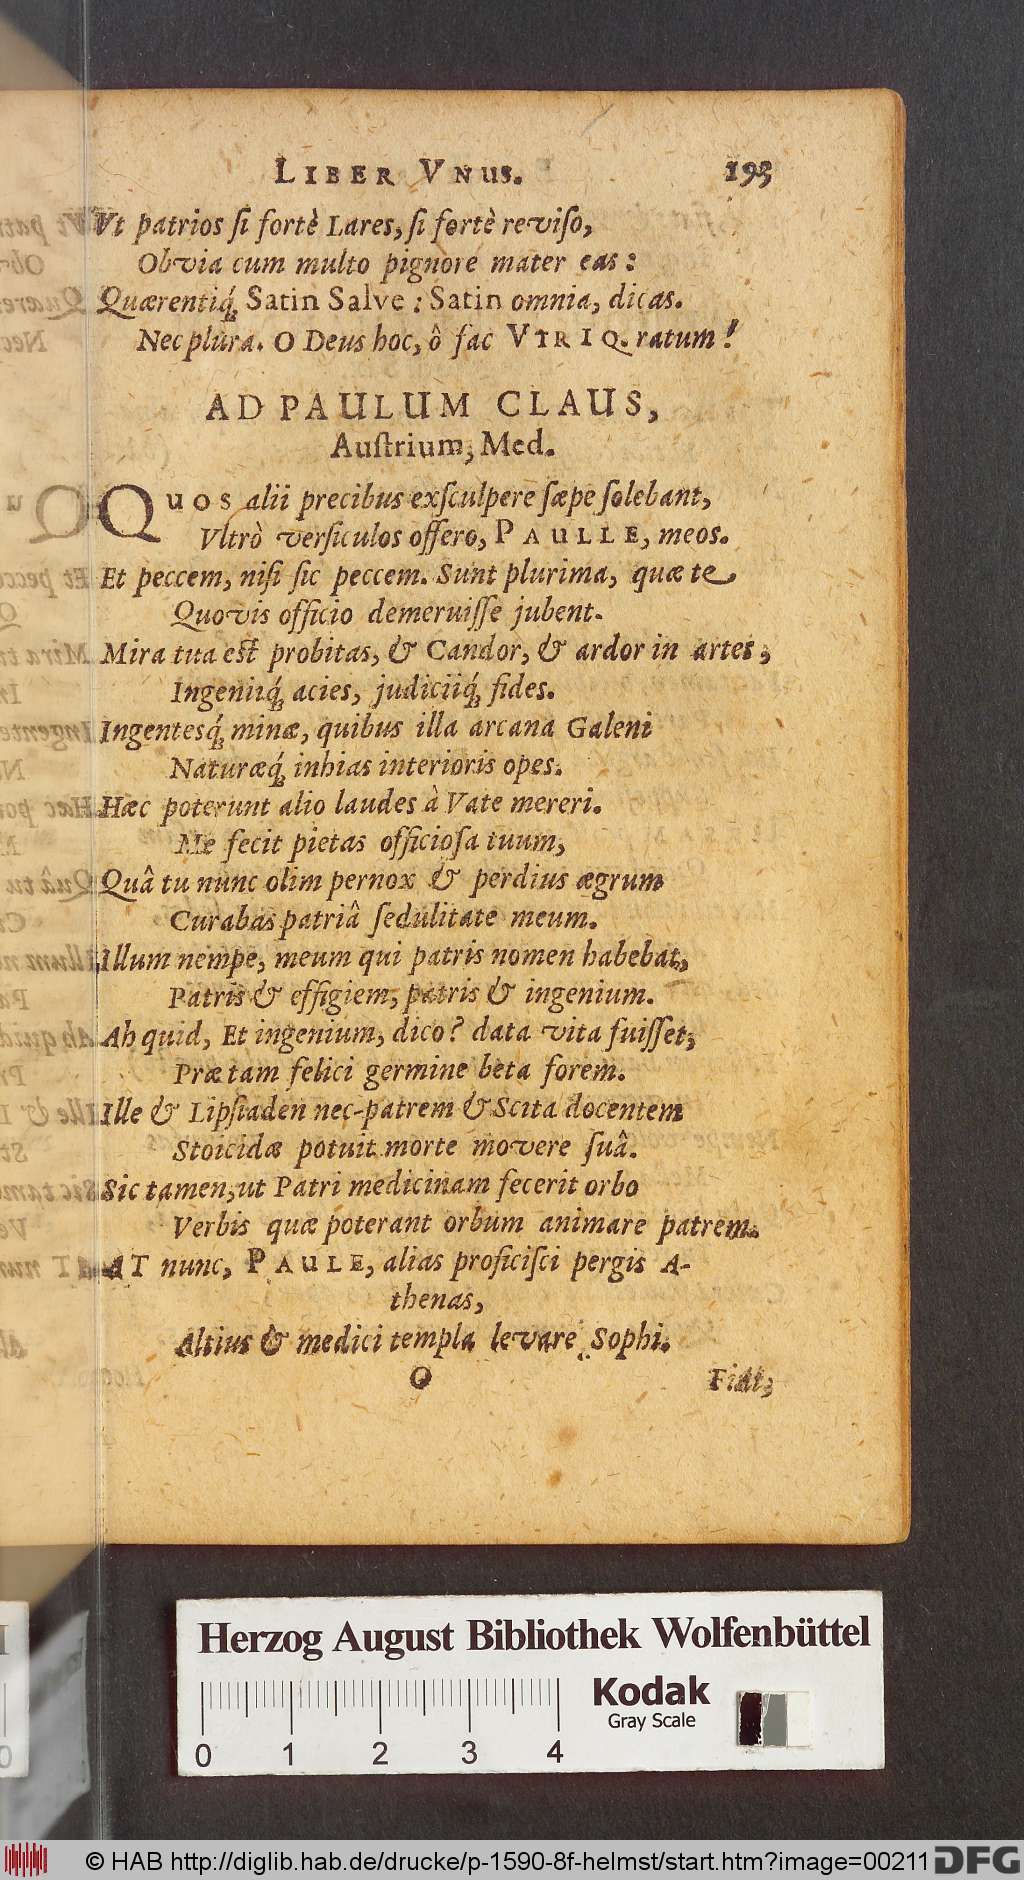 LIBER VNUS. 193
Vt patrios si fortè Lares, si fortè reviso,
Obvia cum multo pignore mater eas:
Quærentiq́ꝫ Satin Salve: Satin omnia, dicas.
Nec plura. O Deus hoc, ô fac VTRIQ. ratum!
AD PAULUM CLAUS,
Austrium, Med.
QUOS alii precibus exsculpere sæpe solebant,
Vltrò versiculos offero, PAULLE, meos.
Et peccem, nisi sic peccem. Sunt plurima, quæ te
Quovis officio demeruisse jubent.
Mira tua est probitas, & Candor, & ardor in artes,
Ingeniiq́ꝫ acies, judiciiq́ꝫ fides.
Ingentesq́ꝫ minæ, quibus illa arcana Galeni
Naturæq́ꝫ inhias interioris opes.
Hæc poterunt alio laudes à Vate mereri.
Me fecit pietas officiosa tuum,
Quâ tu nunc olim pernox & perdius ægrum
Curabas patriâ sedulitate meum.
Illum nempe, meum qui patris nomen habebat,
Patris & effigiem, patris & ingenium.
Ah quid, Et ingenium, dico? data vita fuisset,
Præ tam felici germine beta forem.
Ille & Lipsiaden nec-patrem & Scita docentem
Stoicidæ potuit morte movere suâ.
Sic tamen, ut Patri medicinam fecerit orbo
Verbis quæ poterant orbum animare patrem.
AT nunc, PAULE, alias proficisci pergis A-
thenas,
Altius & medici templa levare Sophi.
O Fidit,
Herzog August Bibliothek Wolfenbüttel
Kodak
Gray Scale
0 1 2 3 4
© HAB http://diglib.hab.de/drucke/p-1590-8f-helmst/start.htm?image=00211 DFG